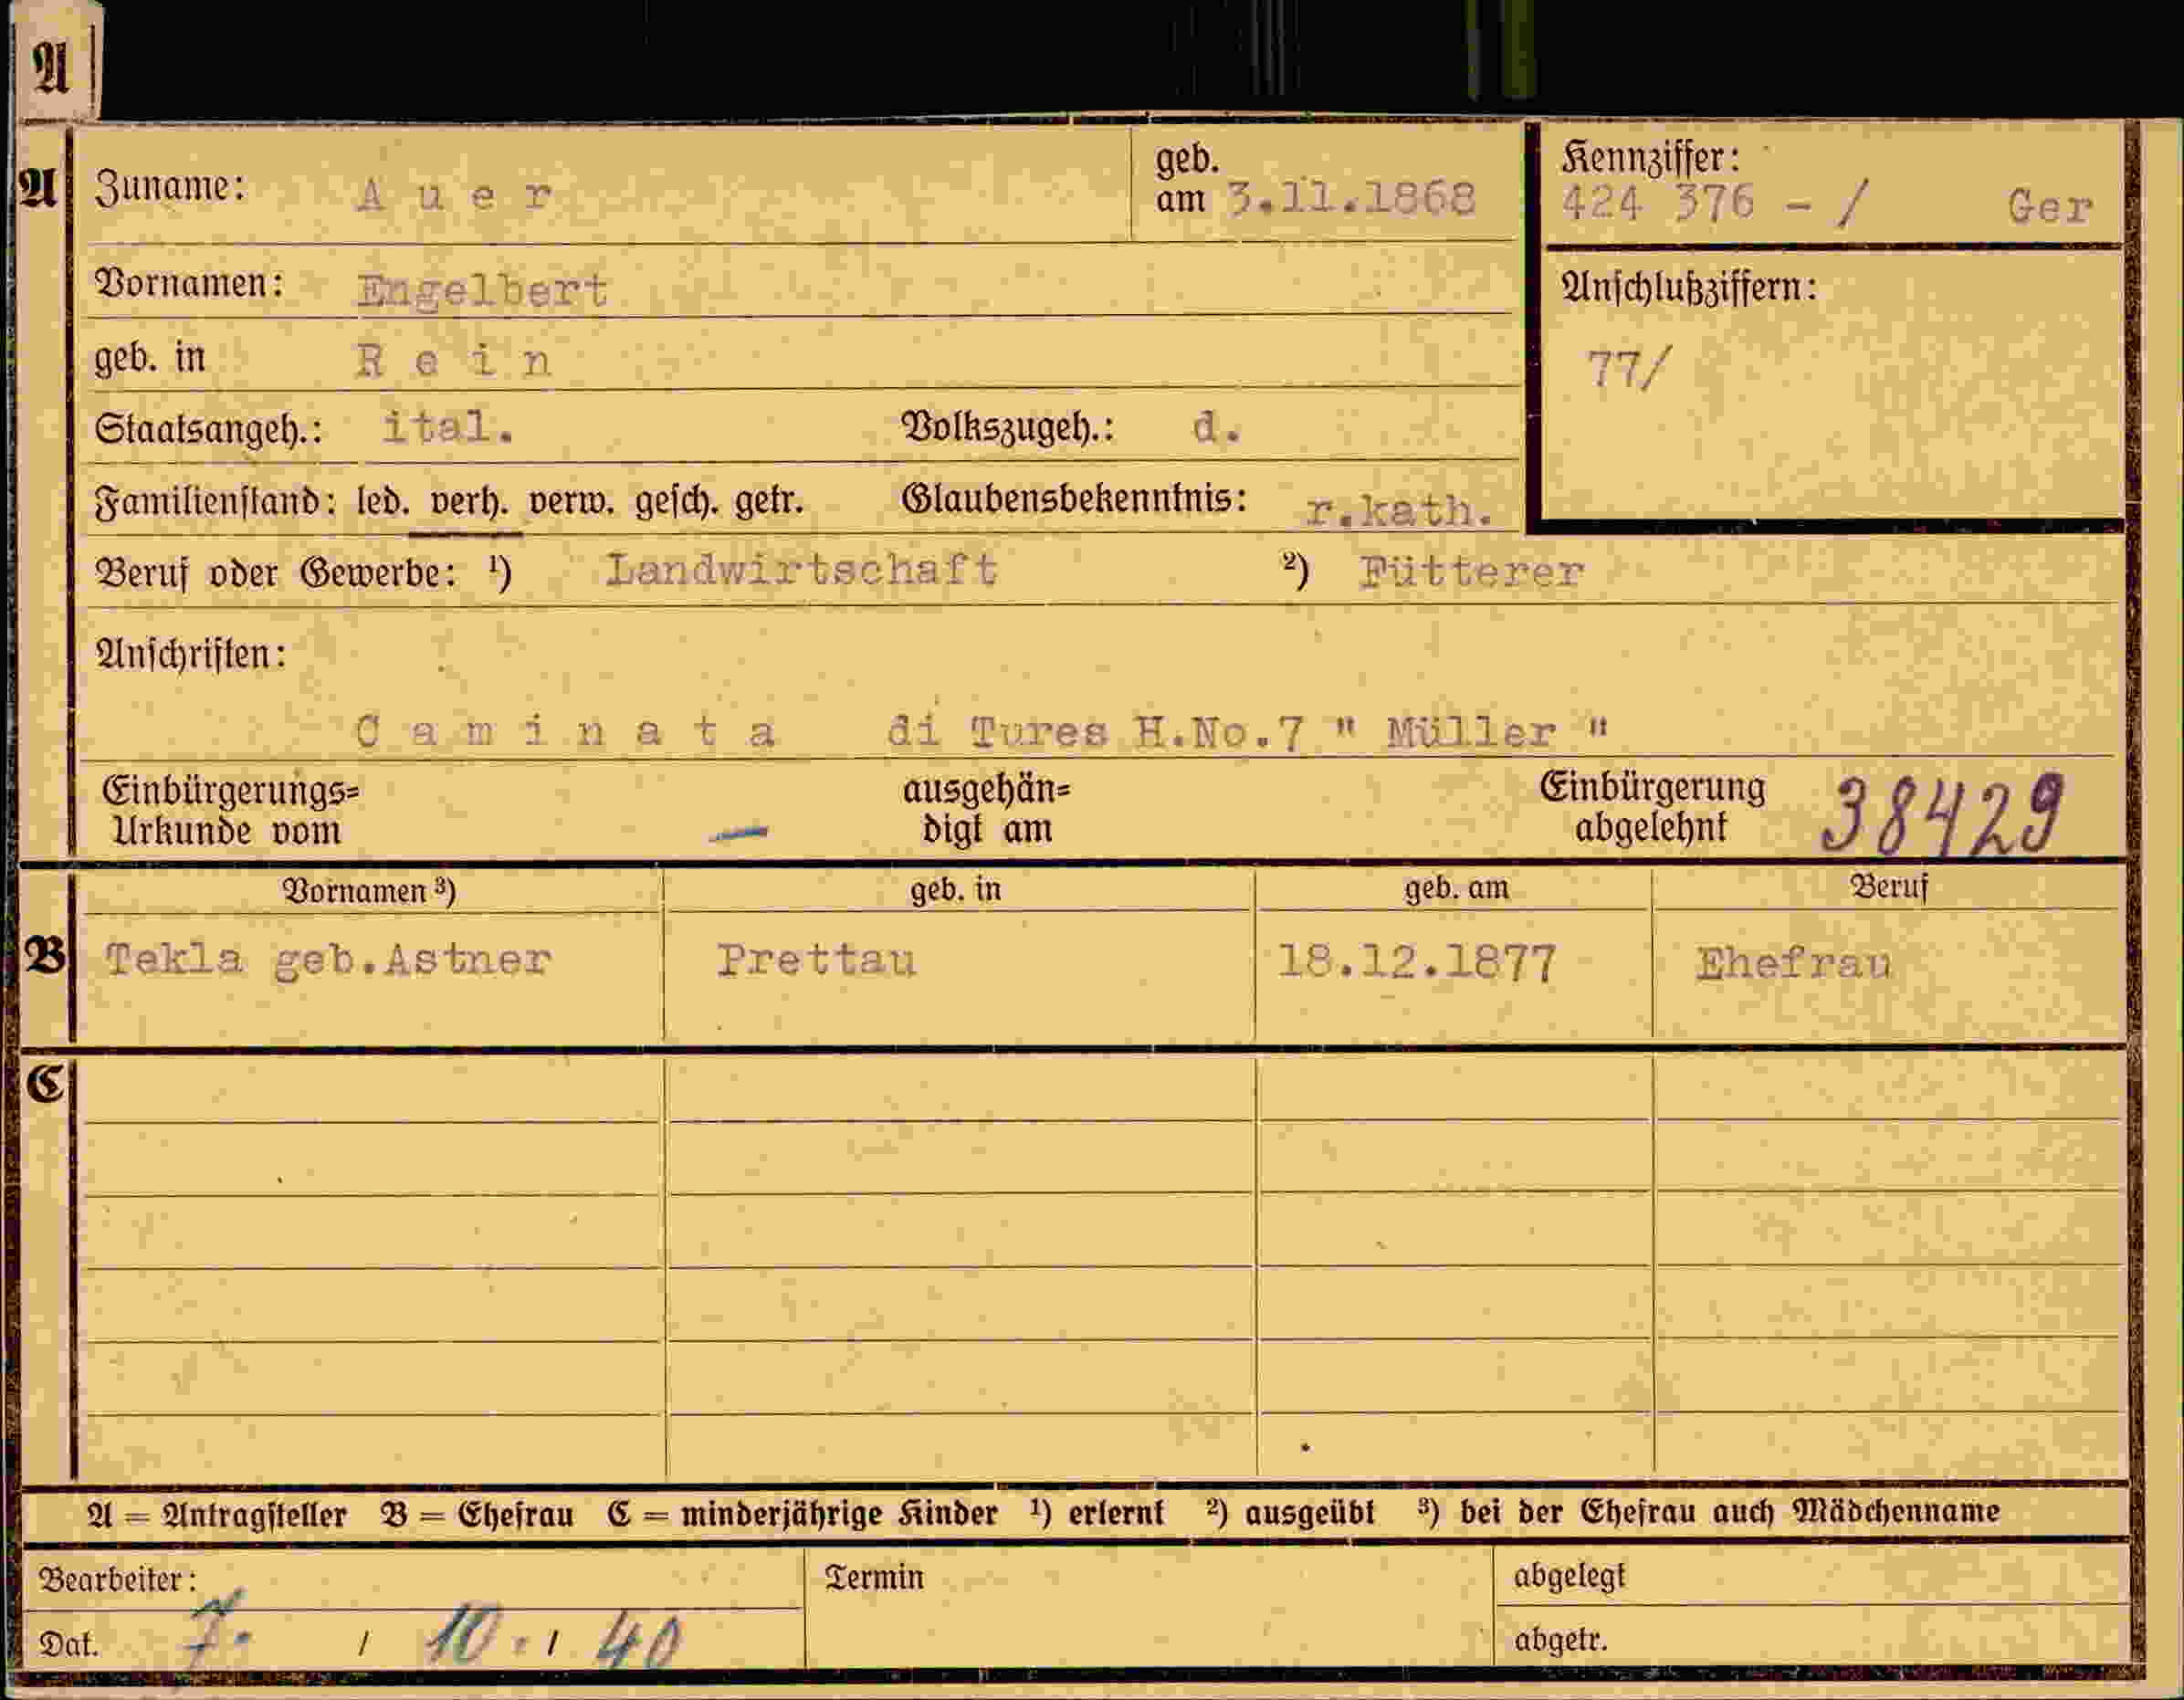 A
A
Zuname: Auer geb. am 3.11.1868
Kennziffer: 424 376 - / Ger
Vornamen: Engelbert
Anschlußziffern: 77/
geb. in Rein
Staatsangeh.: ital. Volkszugeh.: d.
Familienstand: led. verh. verw. gesch. getr. Glaubensbekenntnis: r.kath.
Beruf oder Gewerbe: ¹) Landwirtschaft ²) Fütterer
Anschriften:
Caminata di Tures H.No.7 " Müller "
Einbürgerungs= ausgehän= Einbürgerung 38429
Urkunde vom — digt am abgelehnt
Vornamen ³) geb. in geb. am Beruf
B Tekla geb.Astner Prettau 18.12.1877 Ehefrau
C
A = Antragsteller B = Ehefrau C = minderjährige Kinder ¹) erlernt ²) ausgeübt ³) bei der Ehefrau auch Mädchenname
Bearbeiter: Termin abgelegt
Dat. 7. / 10. / 40 abgetr.